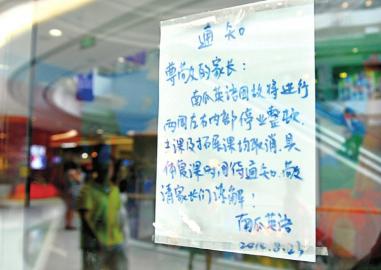 通知
尊敬的家长：
南瓜英语因故将进行
两周左右内部停业整顿，
主课及拓展课均取消，具
体复课时间待通知，敬
请家长们谅解！
南瓜英语
2014.8.23